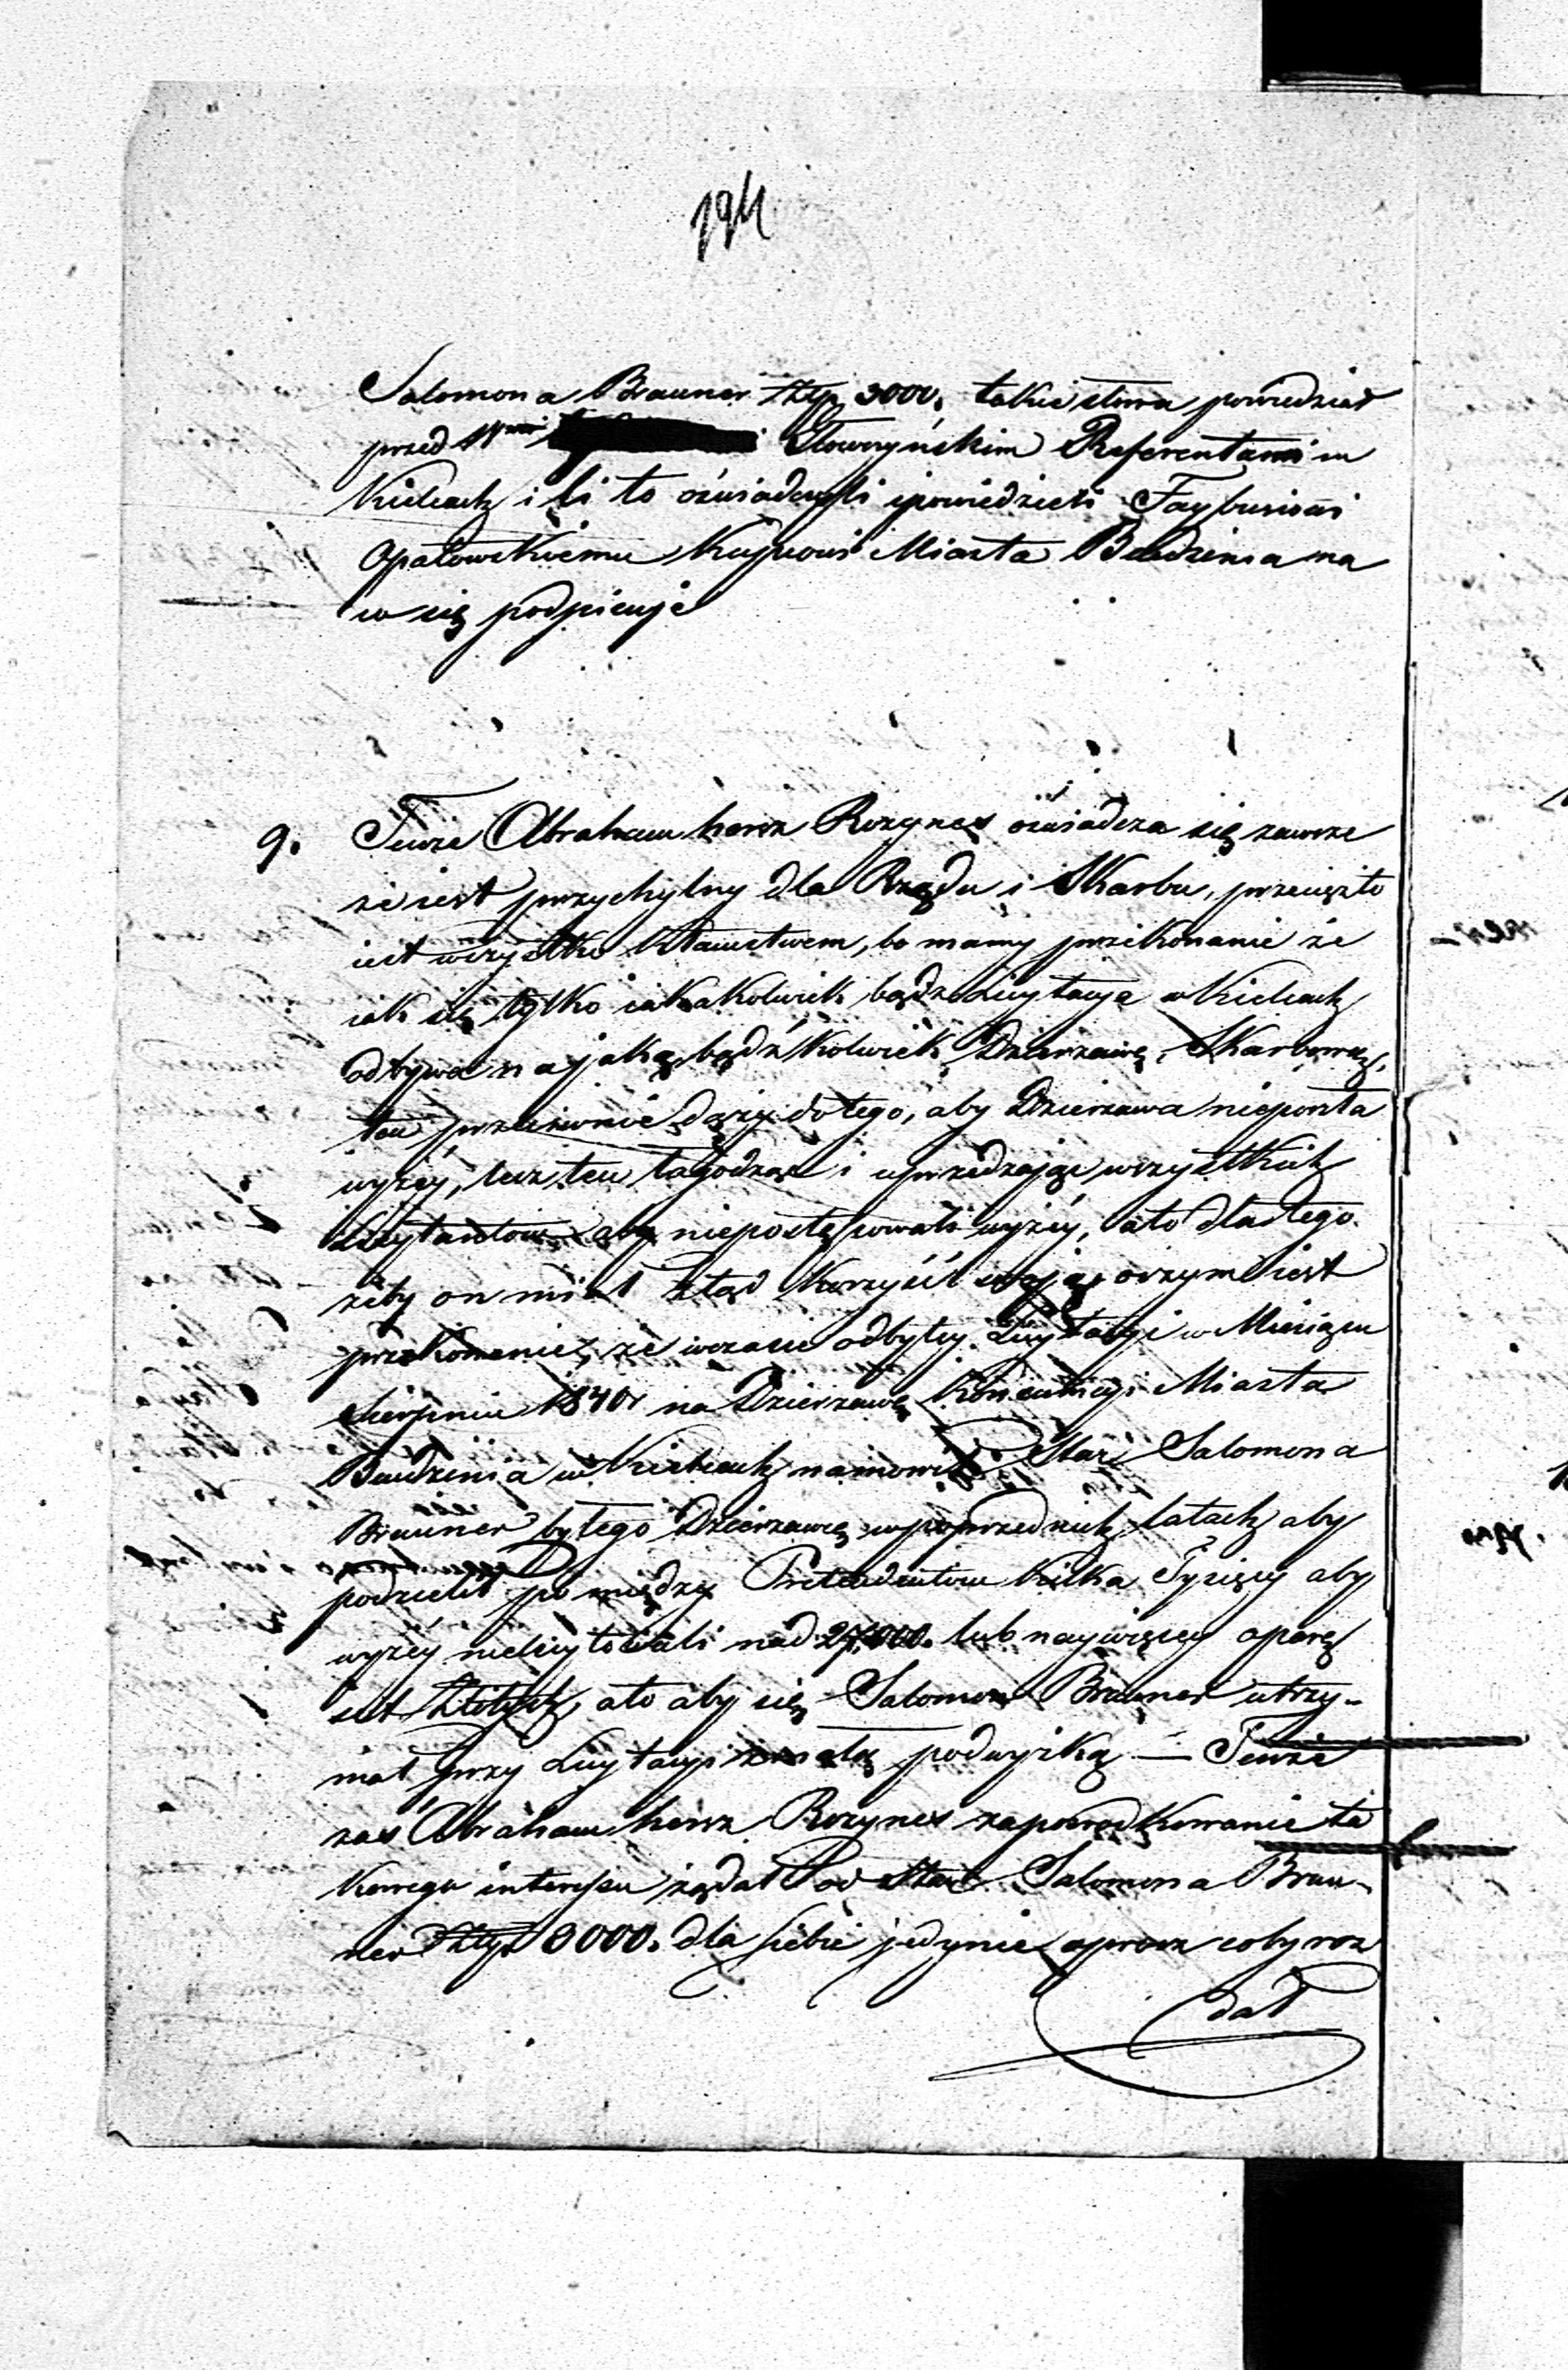 194
Salomona Brauner Złp. 3000. takie słowa powiedział
przed Słowczyńskim Referentami w
Kielcach i Ci to oświadczyli i powiedzieli Faybusiowi
Opatowskiemu Kupcowi Miasta Bendzina na
co się podpisuje
9. Tenże Abraham hersz Rozynes oświadcza się zawsze
że iest przychylny dla Rządu i Skarbu, przecież to
iest wszystko kłamstwem, bo mamy przekonanie że
iak się tylko iakakolwiek bądź Licytacya w Kielcach
odbywa na jaką bądź kolwiek Dzierzawę Skarbową,
ten przeciwnie dąży do tego, aby Dzierzawa nieposzła
wyżey, lecz ten łagodząc i uprzedzając wszystkich
Licytantow aby niepostępowali wyżey, a to dla tego
żeby on miał ztąd korzyść swoją, o czym iest
przekonanie, że w czasie odbytey Licytacyi w Miesiącu
Sierpniu 1840r na Dzierzawę Konsumcyi Miasta
Bendzina w Kielcach namowił Star: Salomona
Brauner byłego Dzierzawcę w poprzednich latach aby
podzielił po między Pretendentow kilka Tysięcy aby
wyżey nielicytowali nad lub naywięcey o parę
set Złotych, a to aby się Salomon Brauner utrzy-
mał przy Licytacyi za małą podwyżką — Tenże
zaś Abraham hersz Rozynes za posrodkowanie ta
kowego interesu żądał od Star. Salomona Brau-
ner Złp. 3000. dla siebie jedynie oprocz coby roz
dał